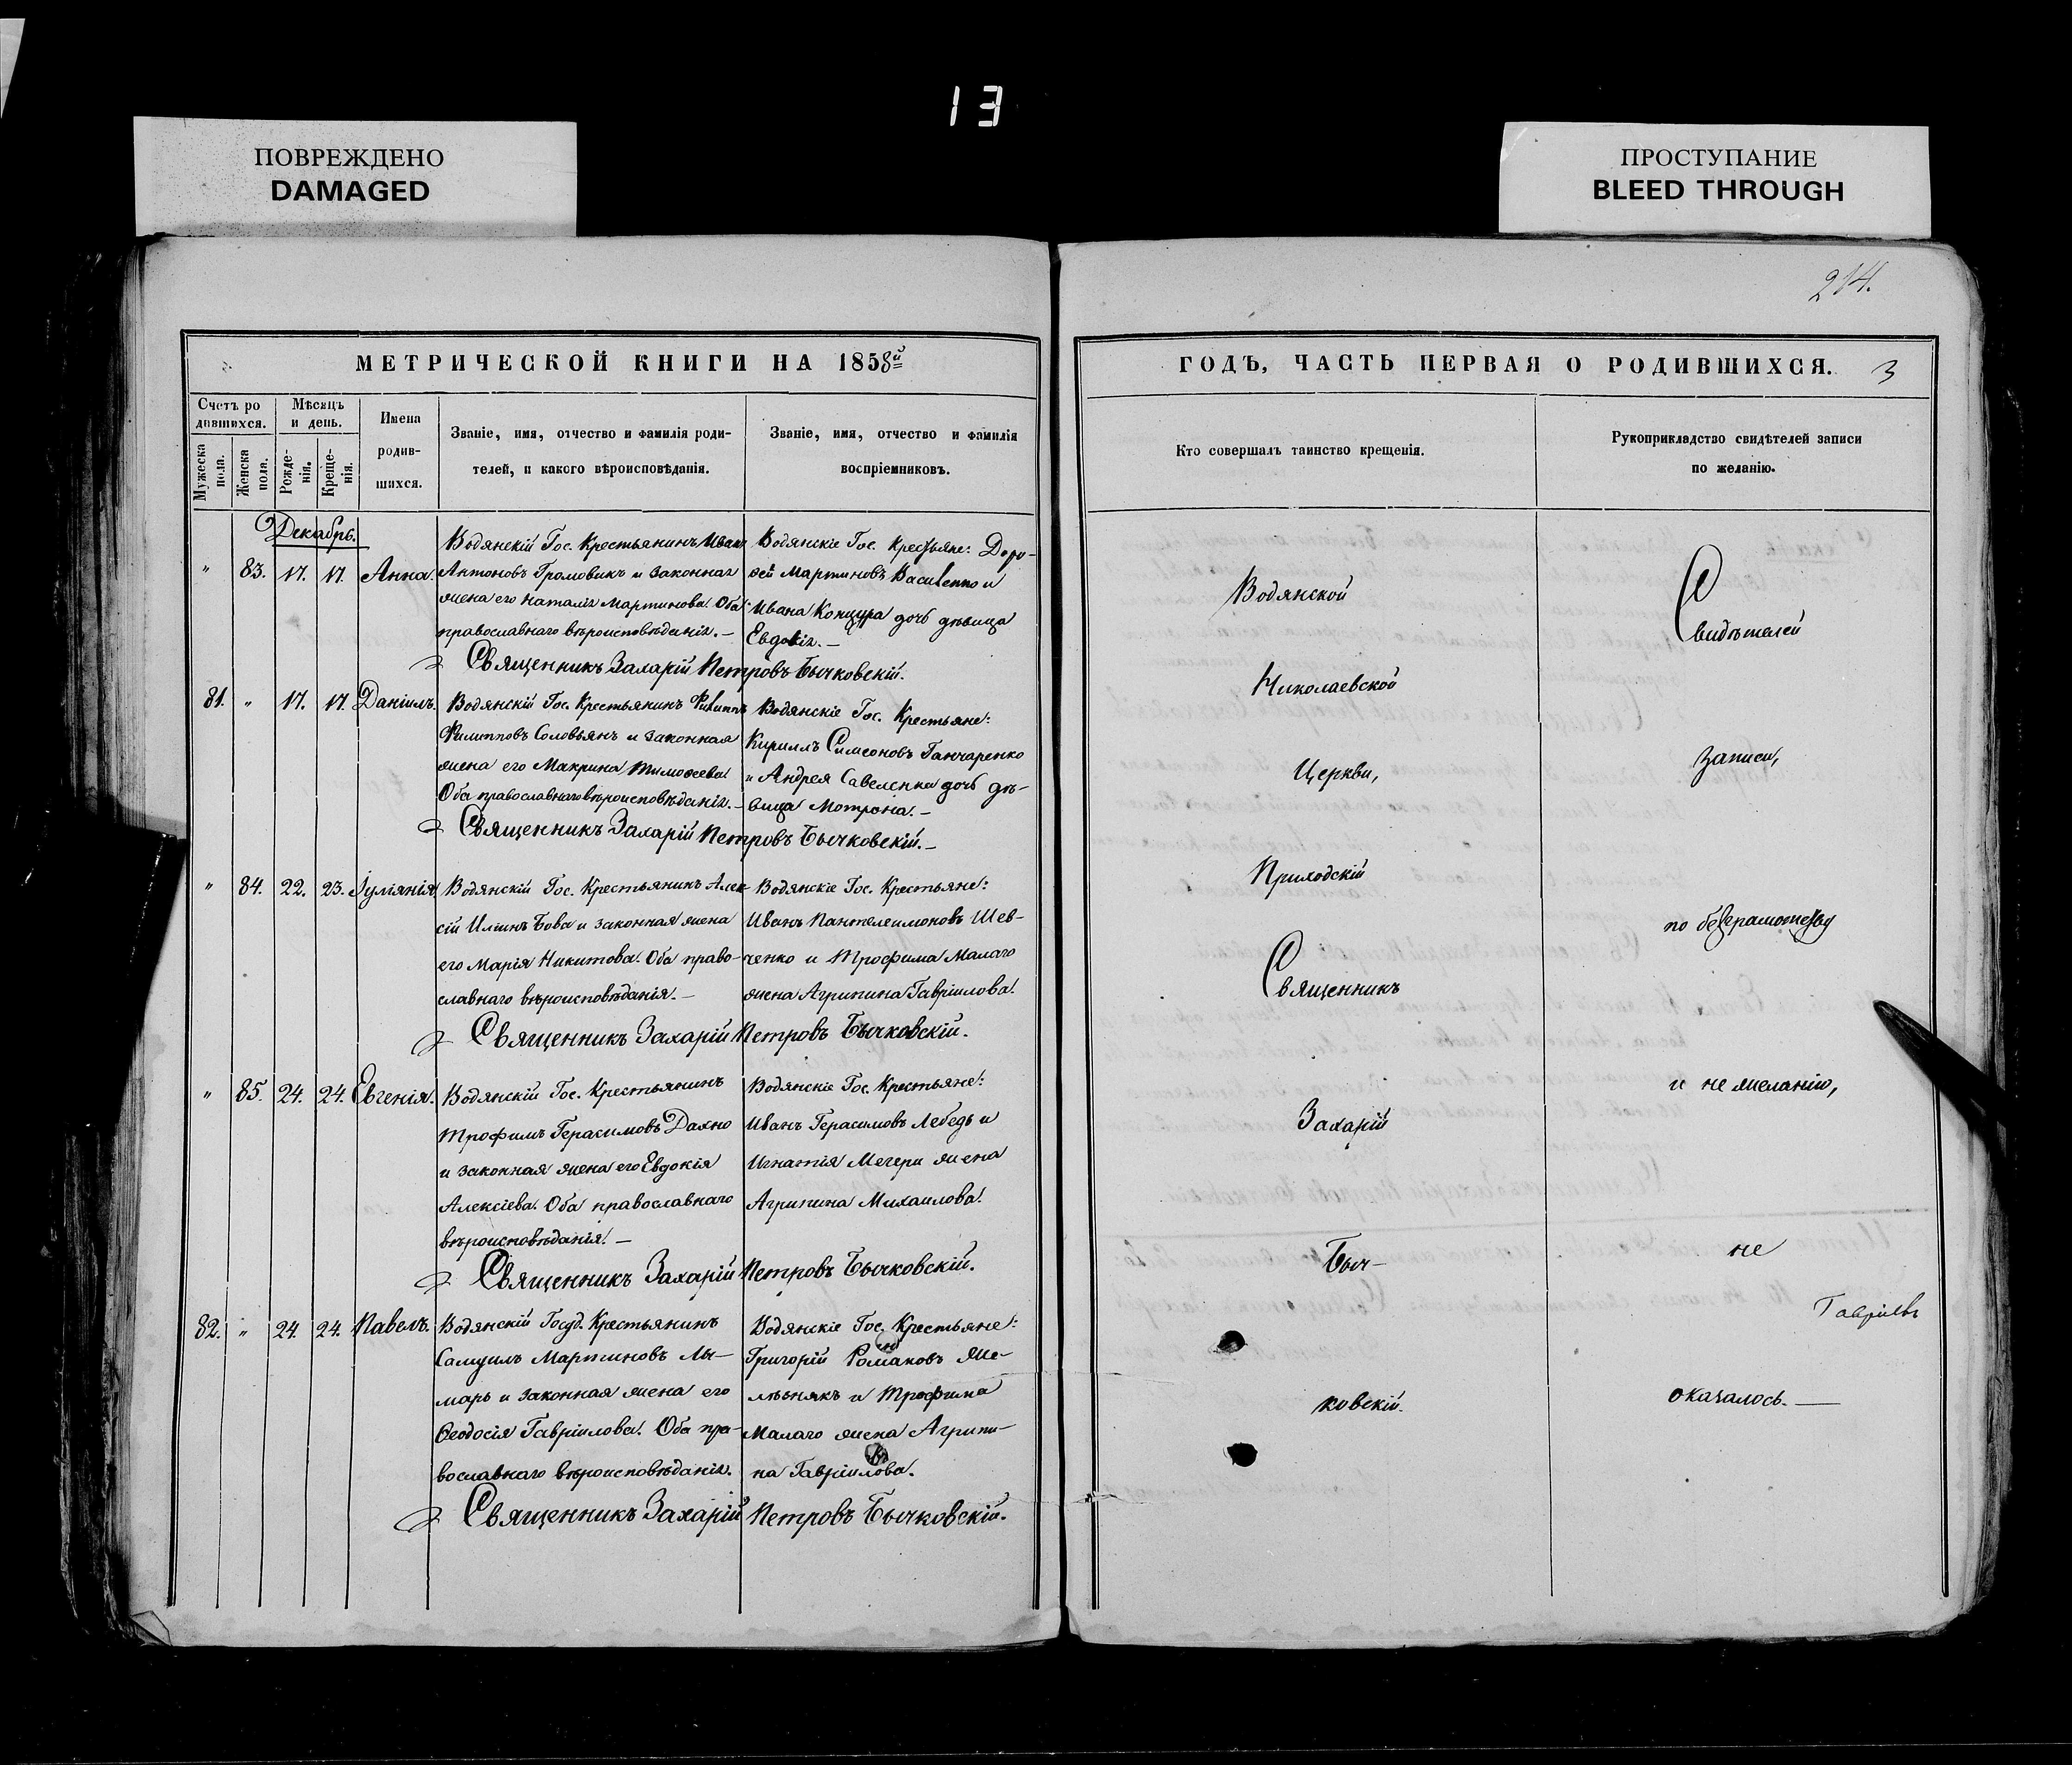 13
ПОВРЕЖДЕНО
DAMAGED
ПРОСТУПАНИЕ
BLEED THROUGH
214.
МЕТРИЧЕСКОЙ КНИГИ НА 1858й
Счетъ ро
дившихся.
Мужеска
пола.
Женска
пола.
Мѣсяцъ
и день.
Рожде-
нія.
Креще-
нія.
Имена
родив-
шихся.
Званіе, имя, отчество и фамилія роди-
телей, и какого вѣроисповѣданія.
Званіе, имя, отчество и фамилія
воспріемниковъ.
Декабрь.
" 83. 17. 17. Анна.
Водянскій Гос. Крестьянинъ Иванъ
Антоновъ Громовикъ и законная
жена его Наталія Мартинова. Оба
православнаго вѣроисповѣданія.—
Водянскіе Гос. Крестьяне: Доро-
ѳей Мартиновъ Василенко и
Ивана Концура дочь дѣвица
Евдокія.—
Священникъ Захарій Петровъ Бычковскій.
81. " 17. 17. Даніилъ.
Водянскій Гос. Крестьянинъ Филиппъ
Филипповъ Соловьянъ и законная
жена его Макрина Тимоѳеева.
Оба православнаго вѣроисповѣданія.—
Водянскіе Гос. Крестьяне:
Кириллъ Симеоновъ Ганчаренко
и Андрея Савеленка дочь дѣ-
вица Мотрона.—
Священникъ Захарій Петровъ Бычковскій.—
" 84. 22. 23. Іуліанія.
Водянскій Гос. Крестьянинъ Алек-
сій Иліинъ Бова и законная жена
его Марія Никитова. Оба право-
славнаго вѣроисповѣданія.—
Водянскіе Гос. Крестьяне:
Иванъ Пантелеимоновъ Шев-
ченко и Трофима Малаго
жена Агрипина Гавріилова.
Священникъ Захарій Петровъ Бычковскій.
" 85. 24. 24. Евгенія.
Водянскій Гос. Крестьянинъ
Трофимъ Герасимовъ Дахно
и законная жена его Евдокія
Алексіева. Оба православнаго
вѣроисповѣданія.—
Водянскіе Гос. Крестьяне:
Иванъ Герасимовъ Лебедь и
Игнатія Мегери жена
Агрипина Михаилова.
Священникъ Захарій Петровъ Бычковскій.
82. " 24. 24. Павелъ.
Водянскій Госуд. Крестьянинъ
Самуилъ Мартиновъ Лы-
марь и законная жена его
Ѳеодосія Гавріилова. Оба пра-
вославнаго вѣроисповѣданія.
Водянскіе Гос. Крестьяне:
Григорій Романовъ Хме-
льнякъ и Трофима
Малаго жена Агрипи-
на Гавріилова.
Священникъ Захарій Петровъ Бычковскій.
ГОДЪ, ЧАСТЬ ПЕРВАЯ О РОДИВШИХСЯ.
3
Кто совершалъ таинство крещенія.
Рукоприкладство свидѣтелей записи
по желанію.
Водянской
Николаевской
Церкви,
Приходскій
Священникъ
Захарій
Быч-
ковскій.
Свидѣтелей
записи,
по безграмотству
и не желанію,
не
Гавріилъ
оказалось.—